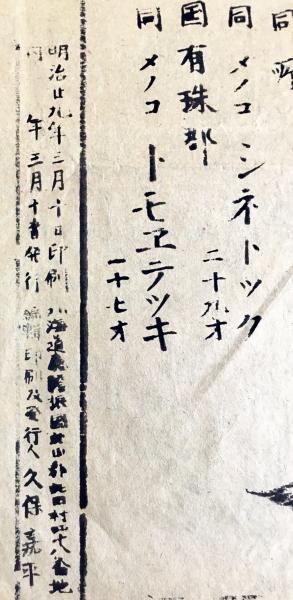 同
同 メノコ シネトック
二十九才
国有珠郡
同 メノコ トモヱテツキ
一十七才
明治廿九年三月十日印刷 北海道廳膽振國
年三月十 発行 編輯印刷及発行人 久保嘉平